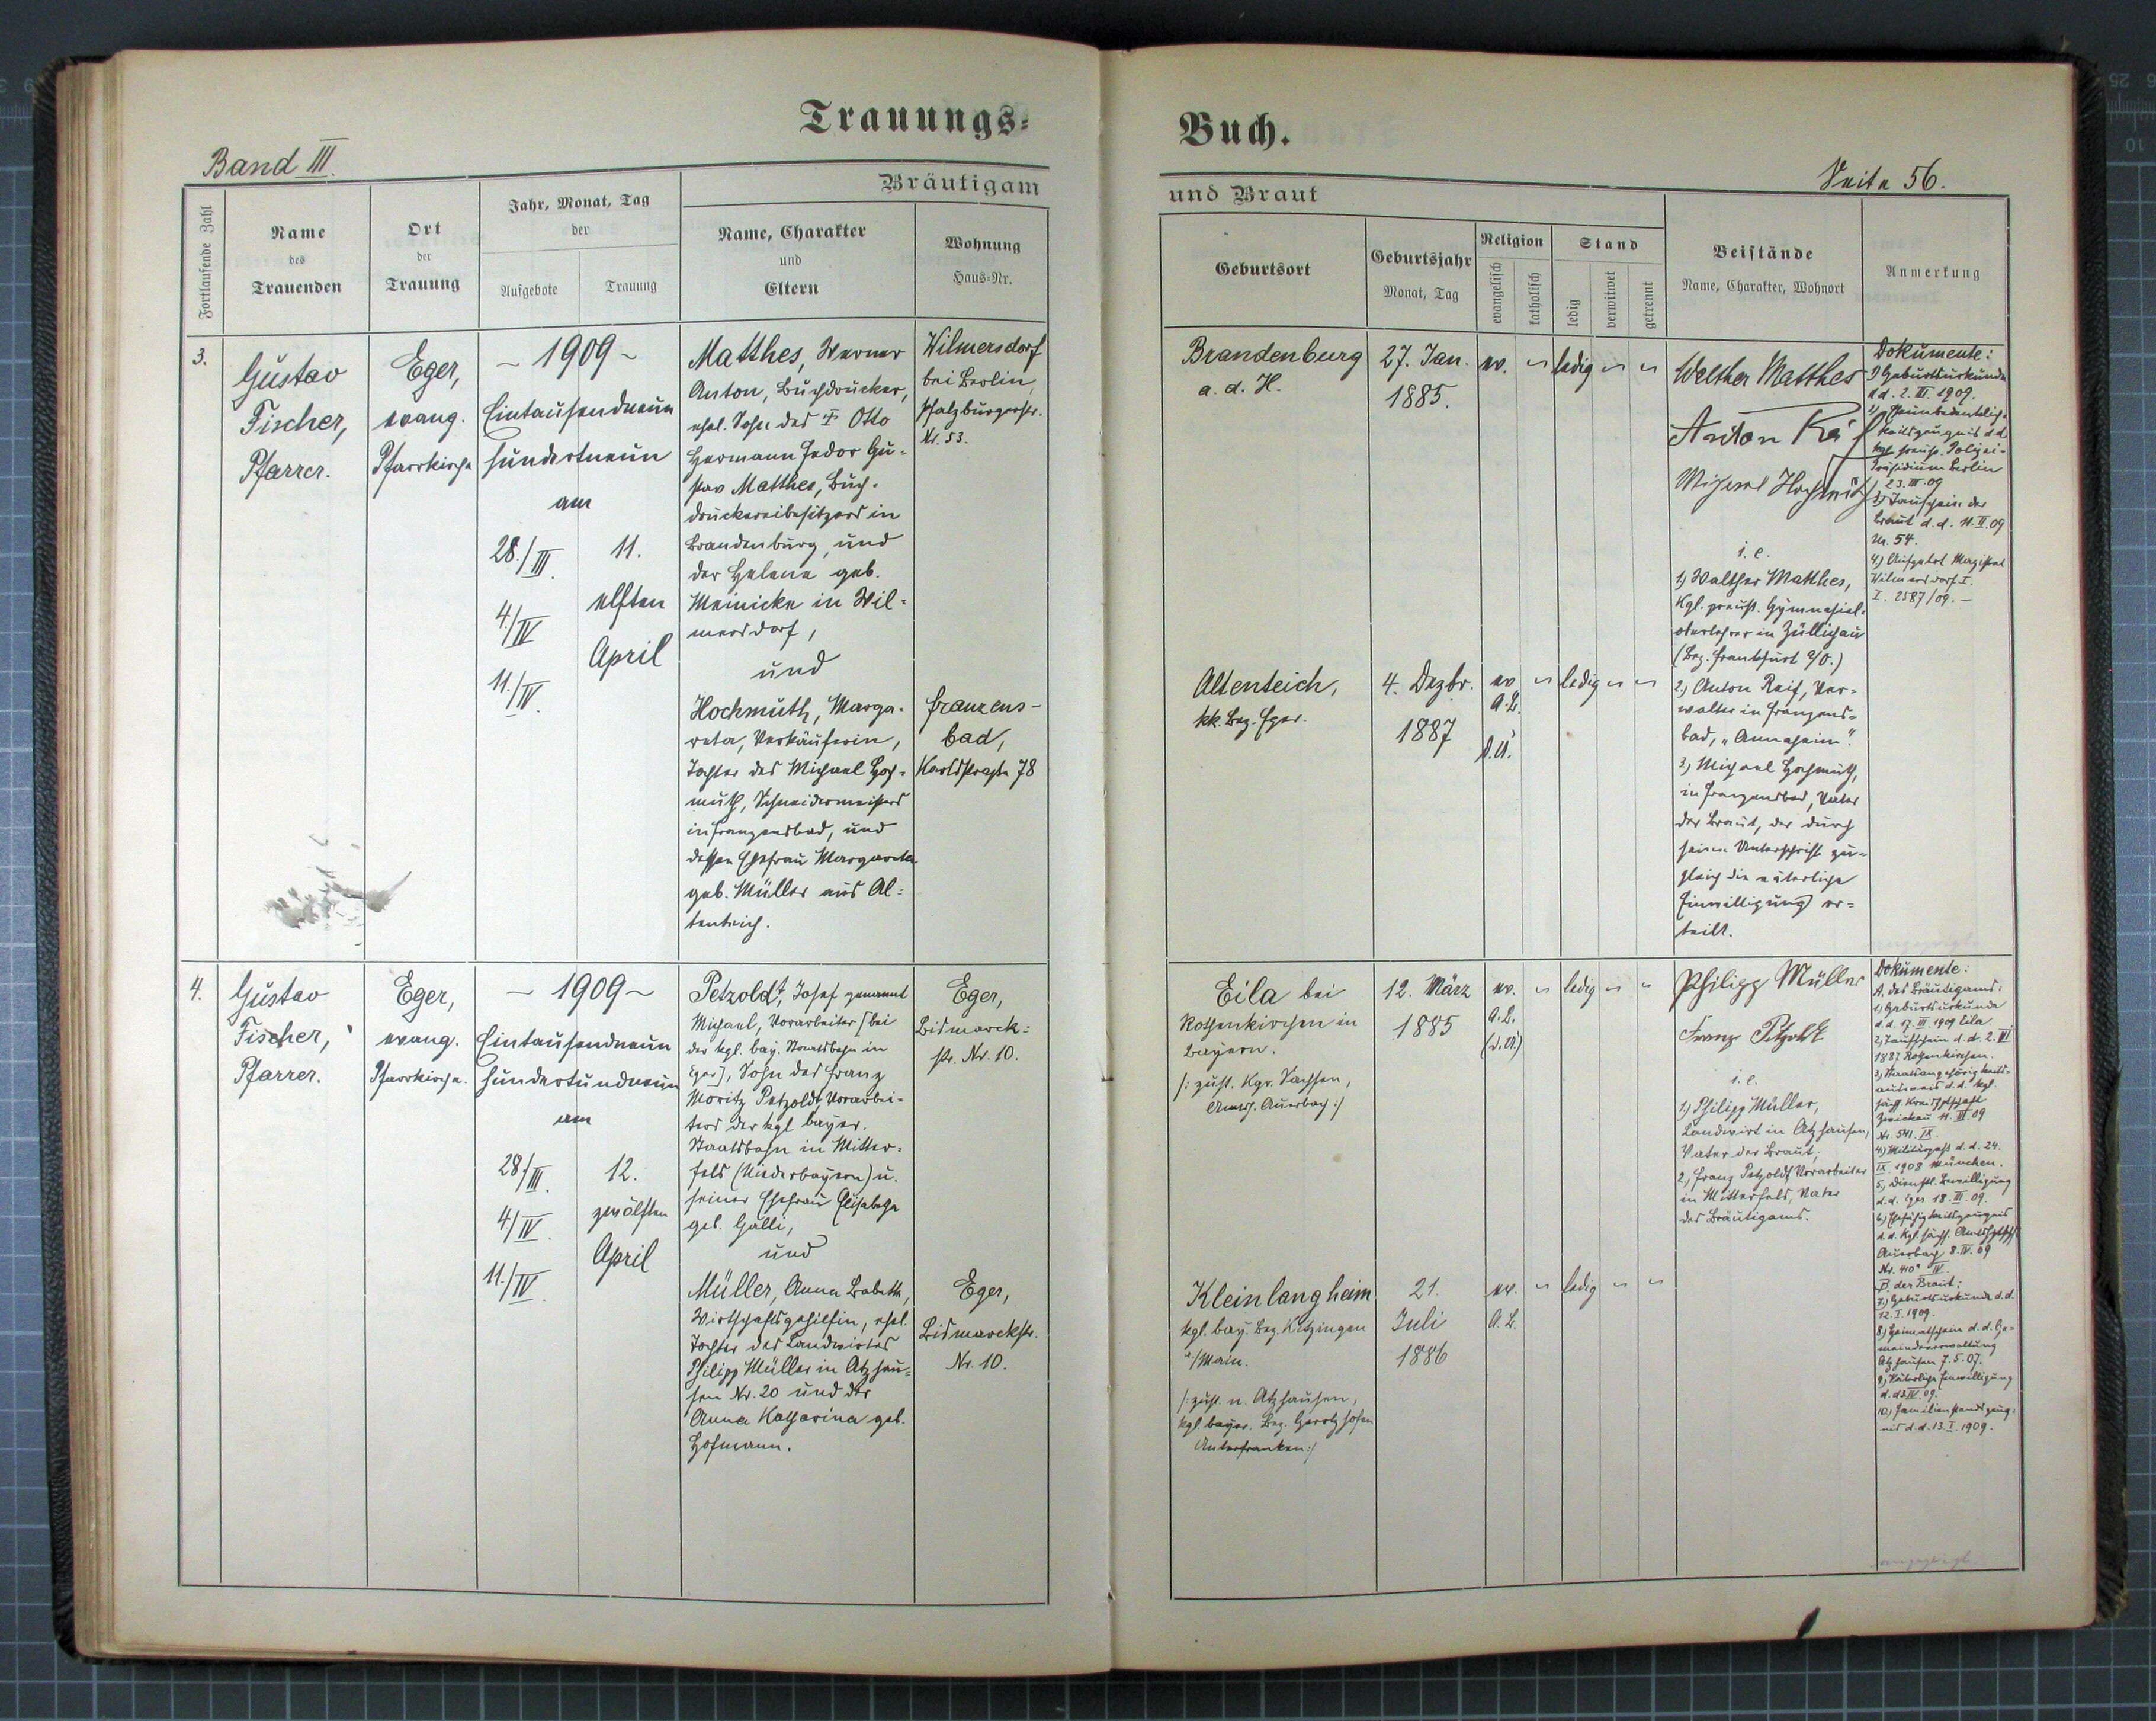 Trauungs-
Buch.
Band III.
Seite 56.
Bräutigam
und Braut
Fortlaufende Zahl
Name
des
Trauenden
Ort
der
Trauung
Jahr, Monat, Tag
der
Aufgebote
Trauung
Name, Charakter
und
Eltern
Wohnung
Haus-Nr.
Geburtsort
Geburtsjahr
Monat, Tag
Religion
evangelisch
katholisch
Stand
ledig
verwitwet
getrennt
Beistände
Name, Charakter, Wohnort
Anmerkung
3.
Gustav
Fischer,
Pfarrer.
Eger,
evang.
Pfarrkirche
- 1909 -
Eintausendneun
hundertneun
am
28./III.
4./IV
11./IV.
11.
elften
April
Matthes, Werner
Anton, Buchdrucker,
ehel. Sohn des † Otto
Hermann Fedor Gu-
stav Matthes, Buch-
druckereibesitzers in
Brandenburg, und
der Helene geb.
Meinicke in Wil-
mersdorf,
und
Hochmuth, Marga-
reta, Verkäuferin,
Tochter des Michael Hoch-
muth, Schneidermeisters
in Franzensbad, und
dessen Ehefrau Margareta
geb. Müller aus Al-
tenteich.
Wilmersdorf
bei Berlin,
Pfalzburgerstr.
Nr. 53.
Franzens-
bad,
Karlstrasse 78
Brandenburg
a. d. H.
27. Jan.
1885.
ev. " ledig " "
Altenteich,
kk. Bez. Eger.
4. Dezbr.
1887
ev " ledig " "
A.B.
Walther Matthes
Anton
Michael Hochmuth
i. e.
1) Walther Matthes,
Kgl. preuß. Gymnasial-
oberlehrer in Züllichau
(Bez. Frankfurt a/O.)
2.) Anton Reif, Ver-
walter in Franzens-
bad, "Annaheim".
3.) Michael Hochmuth,
in Franzensbad, Vater
der Braut, der durch
seine Unterschrift zu-
gleich die väterliche
Einwilligung er-
teilt.
Dokumente:
1) Geburtsurkunde
d.d. 2. III. 1909.
2) Ehe
keitszeugnis d.d.
kgl. preuß. Polizei-
Präsidium Berlin
23. III. 09
3) Taufschein der
Braut d.d. 11. II. 09
Nr. 54.
4) Aufgebot Magistrat
Wilmersdorf I.
I. 2587/09. -
4.
Gustav
Fischer,
Pfarrer.
Eger,
evang.
Pfarrkirche.
- 1909 -
Eintausendneun
hundertundneun
am
28./III.
4./IV.
11./IV.
12.
zwölften
April
Petzoldt, Josef genannt
Michael, Vorarbeiter [bei
der kgl. bay. Staatsbahn in
Eger], Sohn des Franz
Moritz Petzoldt, Vorarbei-
ters der kgl. bayer.
Staatsbahn in Mitter-
fels (Niederbayern) u.
seiner Ehefrau Elisabetha
geb. Galli,
und
Müller, Anna Babetta,
Wirtschaftsgehilfin, ehel.
Tochter des Landwirtes
Philipp Müller in Atzhau-
sen Nr. 20 und der
Anna Katharina geb.
Hofmann.
Eger,
Bismarck-
str. Nr. 10.
Eger,
Bismarckstr.
Nr. 10.
Eila bei
Rothenkirchen in
Bayern.
/: zust. Kgr. Sachsen,
Amtsh. Auerbach :/
12. März
1885
ev. " ledig " "
A.B.
Kleinlangheim
kgl. bay. Bez. Kitzingen
a/Main.
/: zust. n. Atzhausen,
kgl. bayer. Bez. Gerolzhofen
Unterfranken :/
21.
Juli
1886
ev. " ledig " "
A.B.
Philipp Müller
Franz Petzoldt
i. e.
1.) Philipp Müller,
Landwirt in Atzhausen,
Vater der Braut;
2.) Franz Petzoldt, Vorarbeiter
in Mitterfels, Vater
des Bräutigams.
Dokumente:
A. des Bräutigams:
1.) Geburtsurkunde
d.d. 17. III. 1909 Eila
2.) Taufschein d.d. 2. VI
1887 Rothenkirchen.
3.) Staatsangehörigkeits-
ausweis d.d. kgl.
sächs. Kreishptschft
Zwickau 11. III. 09
Nr. 541. IX.
4.) Militärpaß d.d. 24.
IX. 1908 München.
5.) Dienstl. Bewilligung
d.d. Eger 18. III. 09.
6.) Ehefähigkeitszeugnis
d.d. Kgl. sächs. Amtshptsch.
Auerbach 8. IV. 09
Nr. 410 a IV.
B. der Braut:
7.) Geburtsurkunde d.d.
12. I. 1909.
8.) Heimatschein d.d. Ge-
meindeverwaltung
Atzhausen 7. 5. 07.
9.) Väterliche Einwilligung
10.) Familienstandszeug-
nis d.d. 13. I. 1909.
angezeigt